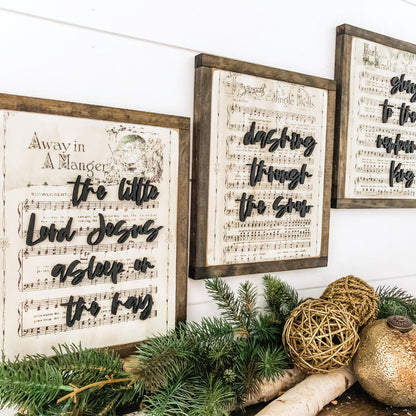 Away in
A Manger
the little
Lord Jesus
asleep on
the hay
Jingle Bells
dashing
through
the snow
Hark
to the
newborn
king